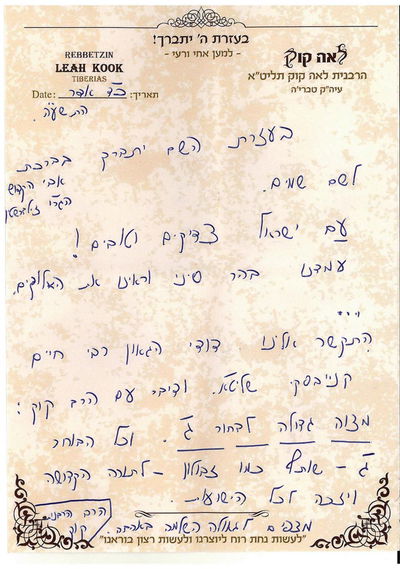 בעזרת ה' יתברך!
- למען אחי ורעי -
REBBETZIN
LEAH KOOK
TIBERIAS
לאה קוק
הרבנית לאה קוק תליט"א
עיה"ק טבריה
Date: כ"ד אדר תאריך:
התשע"ה
בעזרת השם יתברך בברכת
אבי הקדוש
לשם שמים.
עם ישראל צדיקים וטובים!
עמדנו בהר סיני וראינו את האלוקים.
...
התקשר אלינו דודי הגאון רבי חיים
קנייבסקי שליטא. ודיבר עם הרב קוק:
מצוה גדולה לבחור ג'. וכל הבוחר
ג' - שותף כמו זבולון - לתורה הקדושה
ויזכה לכל הישועות.
מצפים לגאולה השלמה
הרב והרבנית
קוק
"לעשות נחת רוח ליוצרנו ולעשות רצון בוראנו"